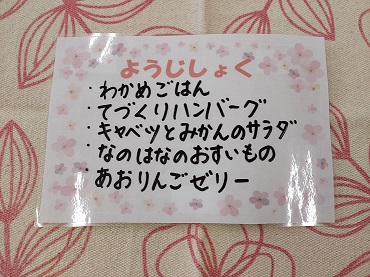 ようじしょく
・わかめごはん
・てづくりハンバーグ
・キャベツとみかんのサラダ
・なのはなのおすいもの
・あおりんごゼリー